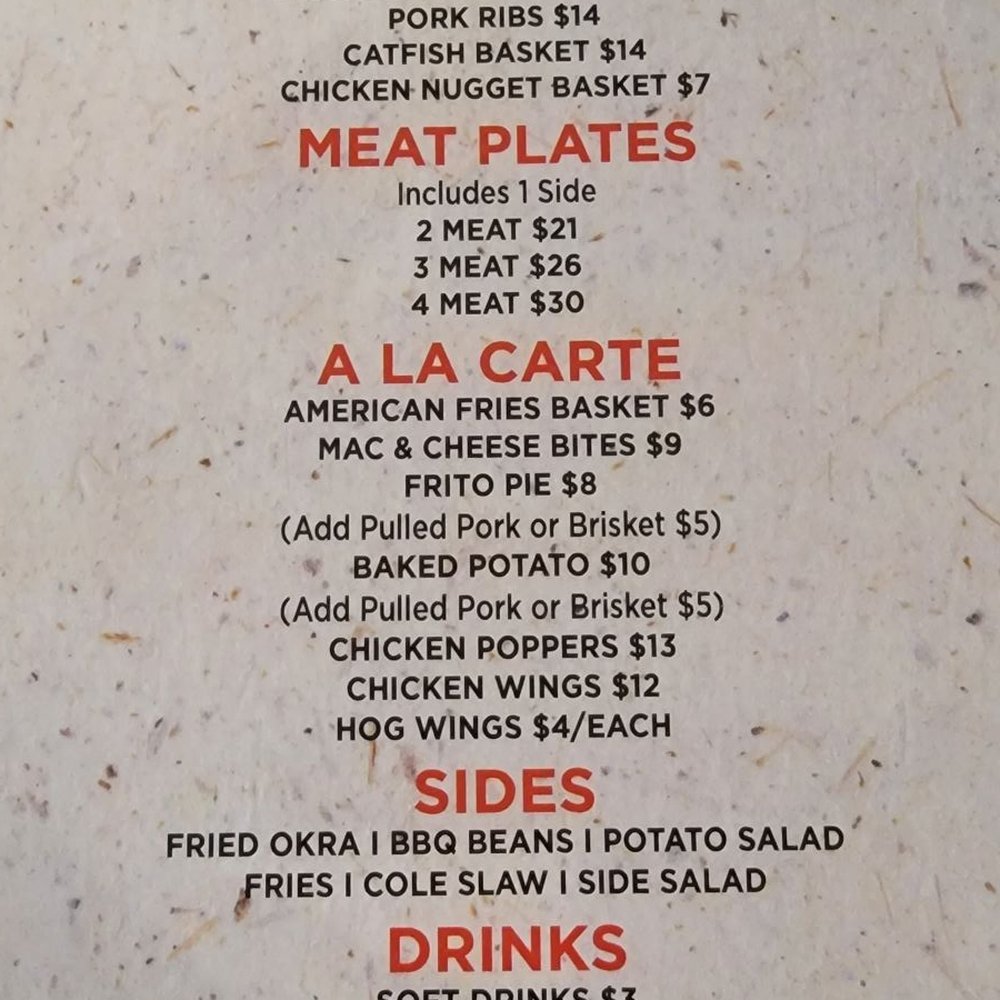 PORK RIBS $14
CATFISH BASKET $14
CHICKEN NUGGET BASKET $7
MEAT PLATES
Includes 1 Side
2 MEAT $21
3 MEAT $26
4 MEAT $30
A LA CARTE
AMERICAN FRIES BASKET $6
MAC & CHEESE BITES $9
FRITO PIE $8
(Add Pulled Pork or Brisket $5)
BAKED POTATO $10
(Add Pulled Pork or Brisket $5)
CHICKEN POPPERS $13
CHICKEN WINGS $12
HOG WINGS $4/EACH
SIDES
FRIED OKRA | BBQ BEANS | POTATO SALAD
FRIES | COLE SLAW | SIDE SALAD
DRINKS
SOFT DRINKS $3